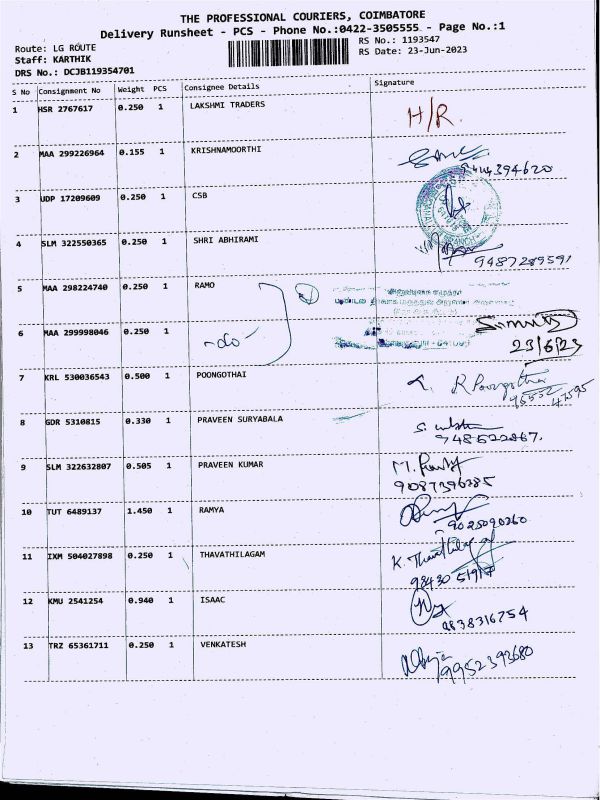 THE PROFESSIONAL COURIERS, COIMBATORE
Delivery Runsheet - PCS - Phone No.:0422-3505555 - Page No.:1
Route: LG ROUTE
RS No.: 1193547
Staff: KARTHIK
RS Date: 23-Jun-2023
DRS No.: DCJB119354701
S No Consignment No Weight PCS Consignee Details Signature
1 HSR 2767617 0.250 1 LAKSHMI TRADERS H/R
2 MAA 299226964 0.155 1 KRISHNAMOORTHI
3 UDP 17209609 0.250 1 CSB
4 SLM 322550365 0.250 1 SHRI ABHIRAMI
9487289591
5 MAA 298224740 0.250 1 RAMO
6 MAA 299998046 0.250 1 -do-
23/6/23
7 KRL 530036543 0.500 1 POONGOTHAI R Poongothai
8 GDR 5310815 0.330 1 PRAVEEN SURYABALA
9 SLM 322632807 0.505 1 PRAVEEN KUMAR
9087396285
10 TUT 6489137 1.450 1 RAMYA
9025090260
11 IXM 504027898 0.250 1 THAVATHILAGAM
12 KMU 2541254 0.940 1 ISAAC
9838316754
13 TRZ 65361711 0.250 1 VENKATESH
9952393680